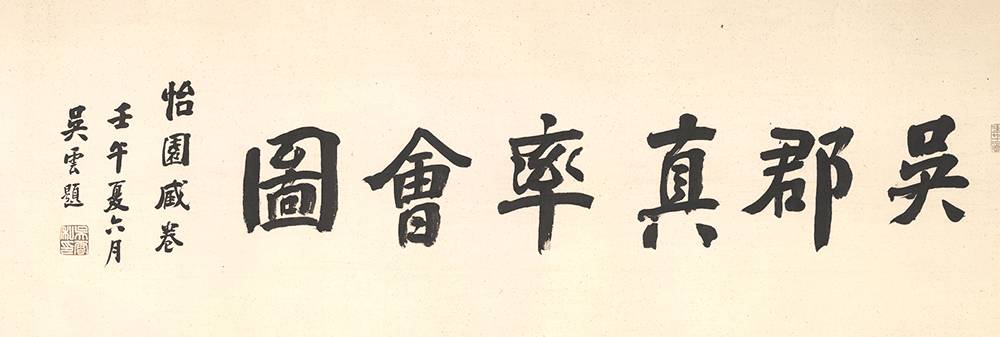 吳郡真率會圖
怡園藏卷
壬午夏六月
吳雲題